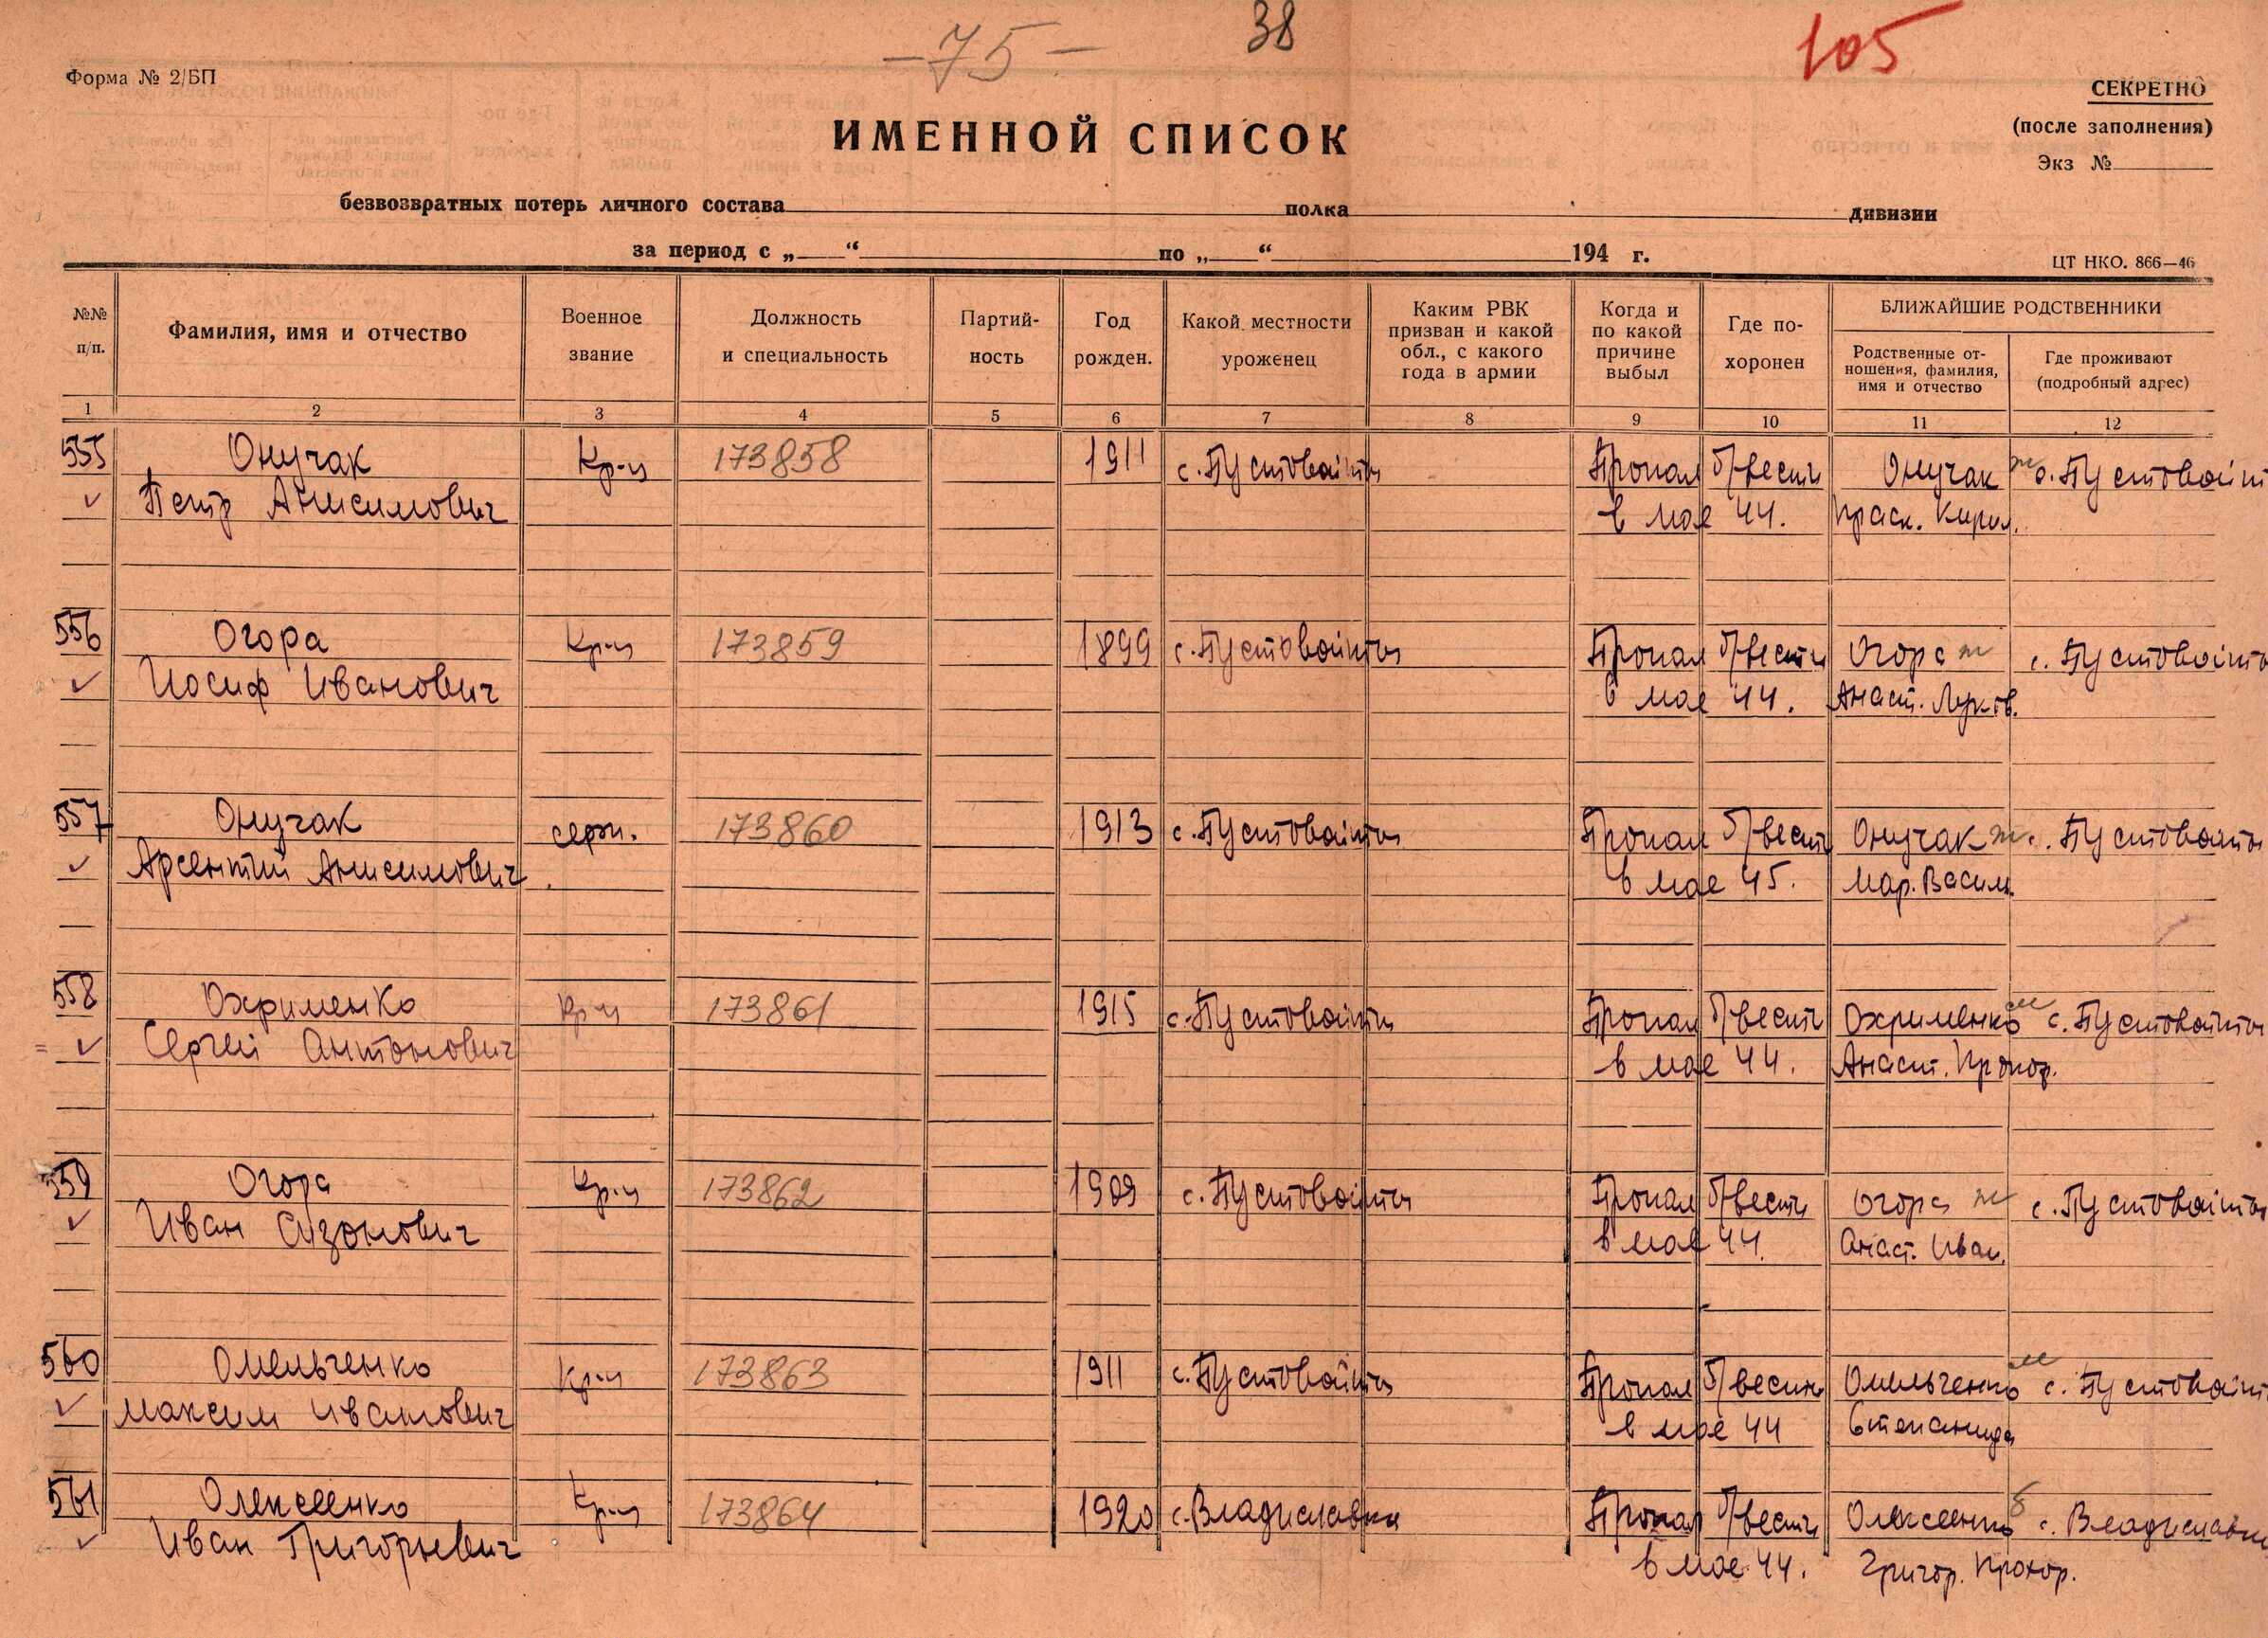 -75-
38
105
Форма № 2/БП
СЕКРЕТНО
(после заполнения)
Экз №
ИМЕННОЙ СПИСОК
безвозвратных потерь личного состава полка дивизии
за период с „ “ по „ “ 194 г.
ЦТ НКО. 866—46
№№ п/п.
Фамилия, имя и отчество
Военное звание
Должность и специальность
Партий-ность
Год рожден.
Какой местности уроженец
Каким РВК призван и какой обл., с какого года в армии
Когда и по какой причине выбыл
Где по-хоронен
БЛИЖАЙШИЕ РОДСТВЕННИКИ
Родственные от-ношения, фамилия, имя и отчество
Где проживают (подробный адрес)
1 2 3 4 5 6 7 8 9 10 11 12
555 Онучак Кр-ц 173858 1911 с. Пустовойты Пропал б/вести Онучак ж с. Пустовойт
Петр Анисимович в мае 44. Праск. Кирил.
556 Огора Кр-ц 173859 1899 с. Пустовойты Пропал б/вести Огора ж с. Пустовойты
Иосиф Иванович в мае 44. Анаст. Луков.
557 Онучак серж. 173860 1913 с. Пустовойты Пропал б/вести Онучак ж с. Пустовойты
Арсентий Анисимович в мае 45. Мар. Васил.
558 Охрименко Кр-ц 173861 1915 с. Пустовойты Пропал б/вести Охрименко ж с. Пустовойты
Сергей Антонович в мае 44. Анаст. Прокоф.
559 Огора Кр-ц 173862 1909 с. Пустовойты Пропал б/вести Огора ж с. Пустовойты
Иван Сизонович в мае 44. Анаст. Иван.
560 Омельченко Кр-ц 173863 1911 с. Пустовойты Пропал б/вести Омельченко ж с. Пустовойт
Максим Иванович в мае 44 Степанида
561 Олексеенко Кр-ц 173864 1920 с. Владиславка Пропал б/вести Олексеенко с. Владиславка
Иван Григорьевич в мае 44. Григор. Прохор.